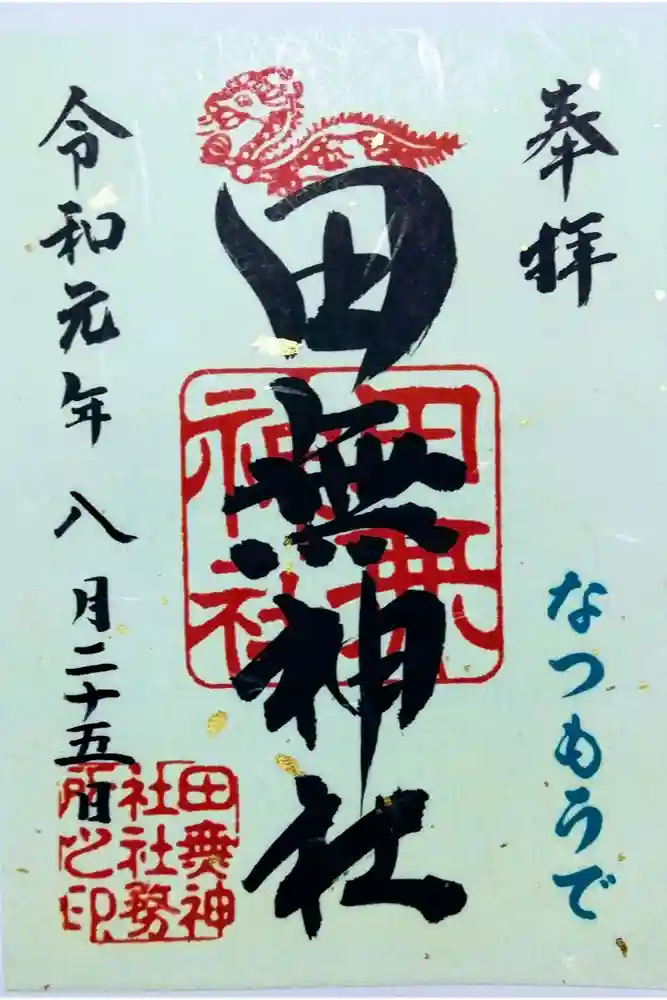 奉拝
なつもうで
田無神社
田無神社
令和元年八月二十五日
田無神社社務所之印